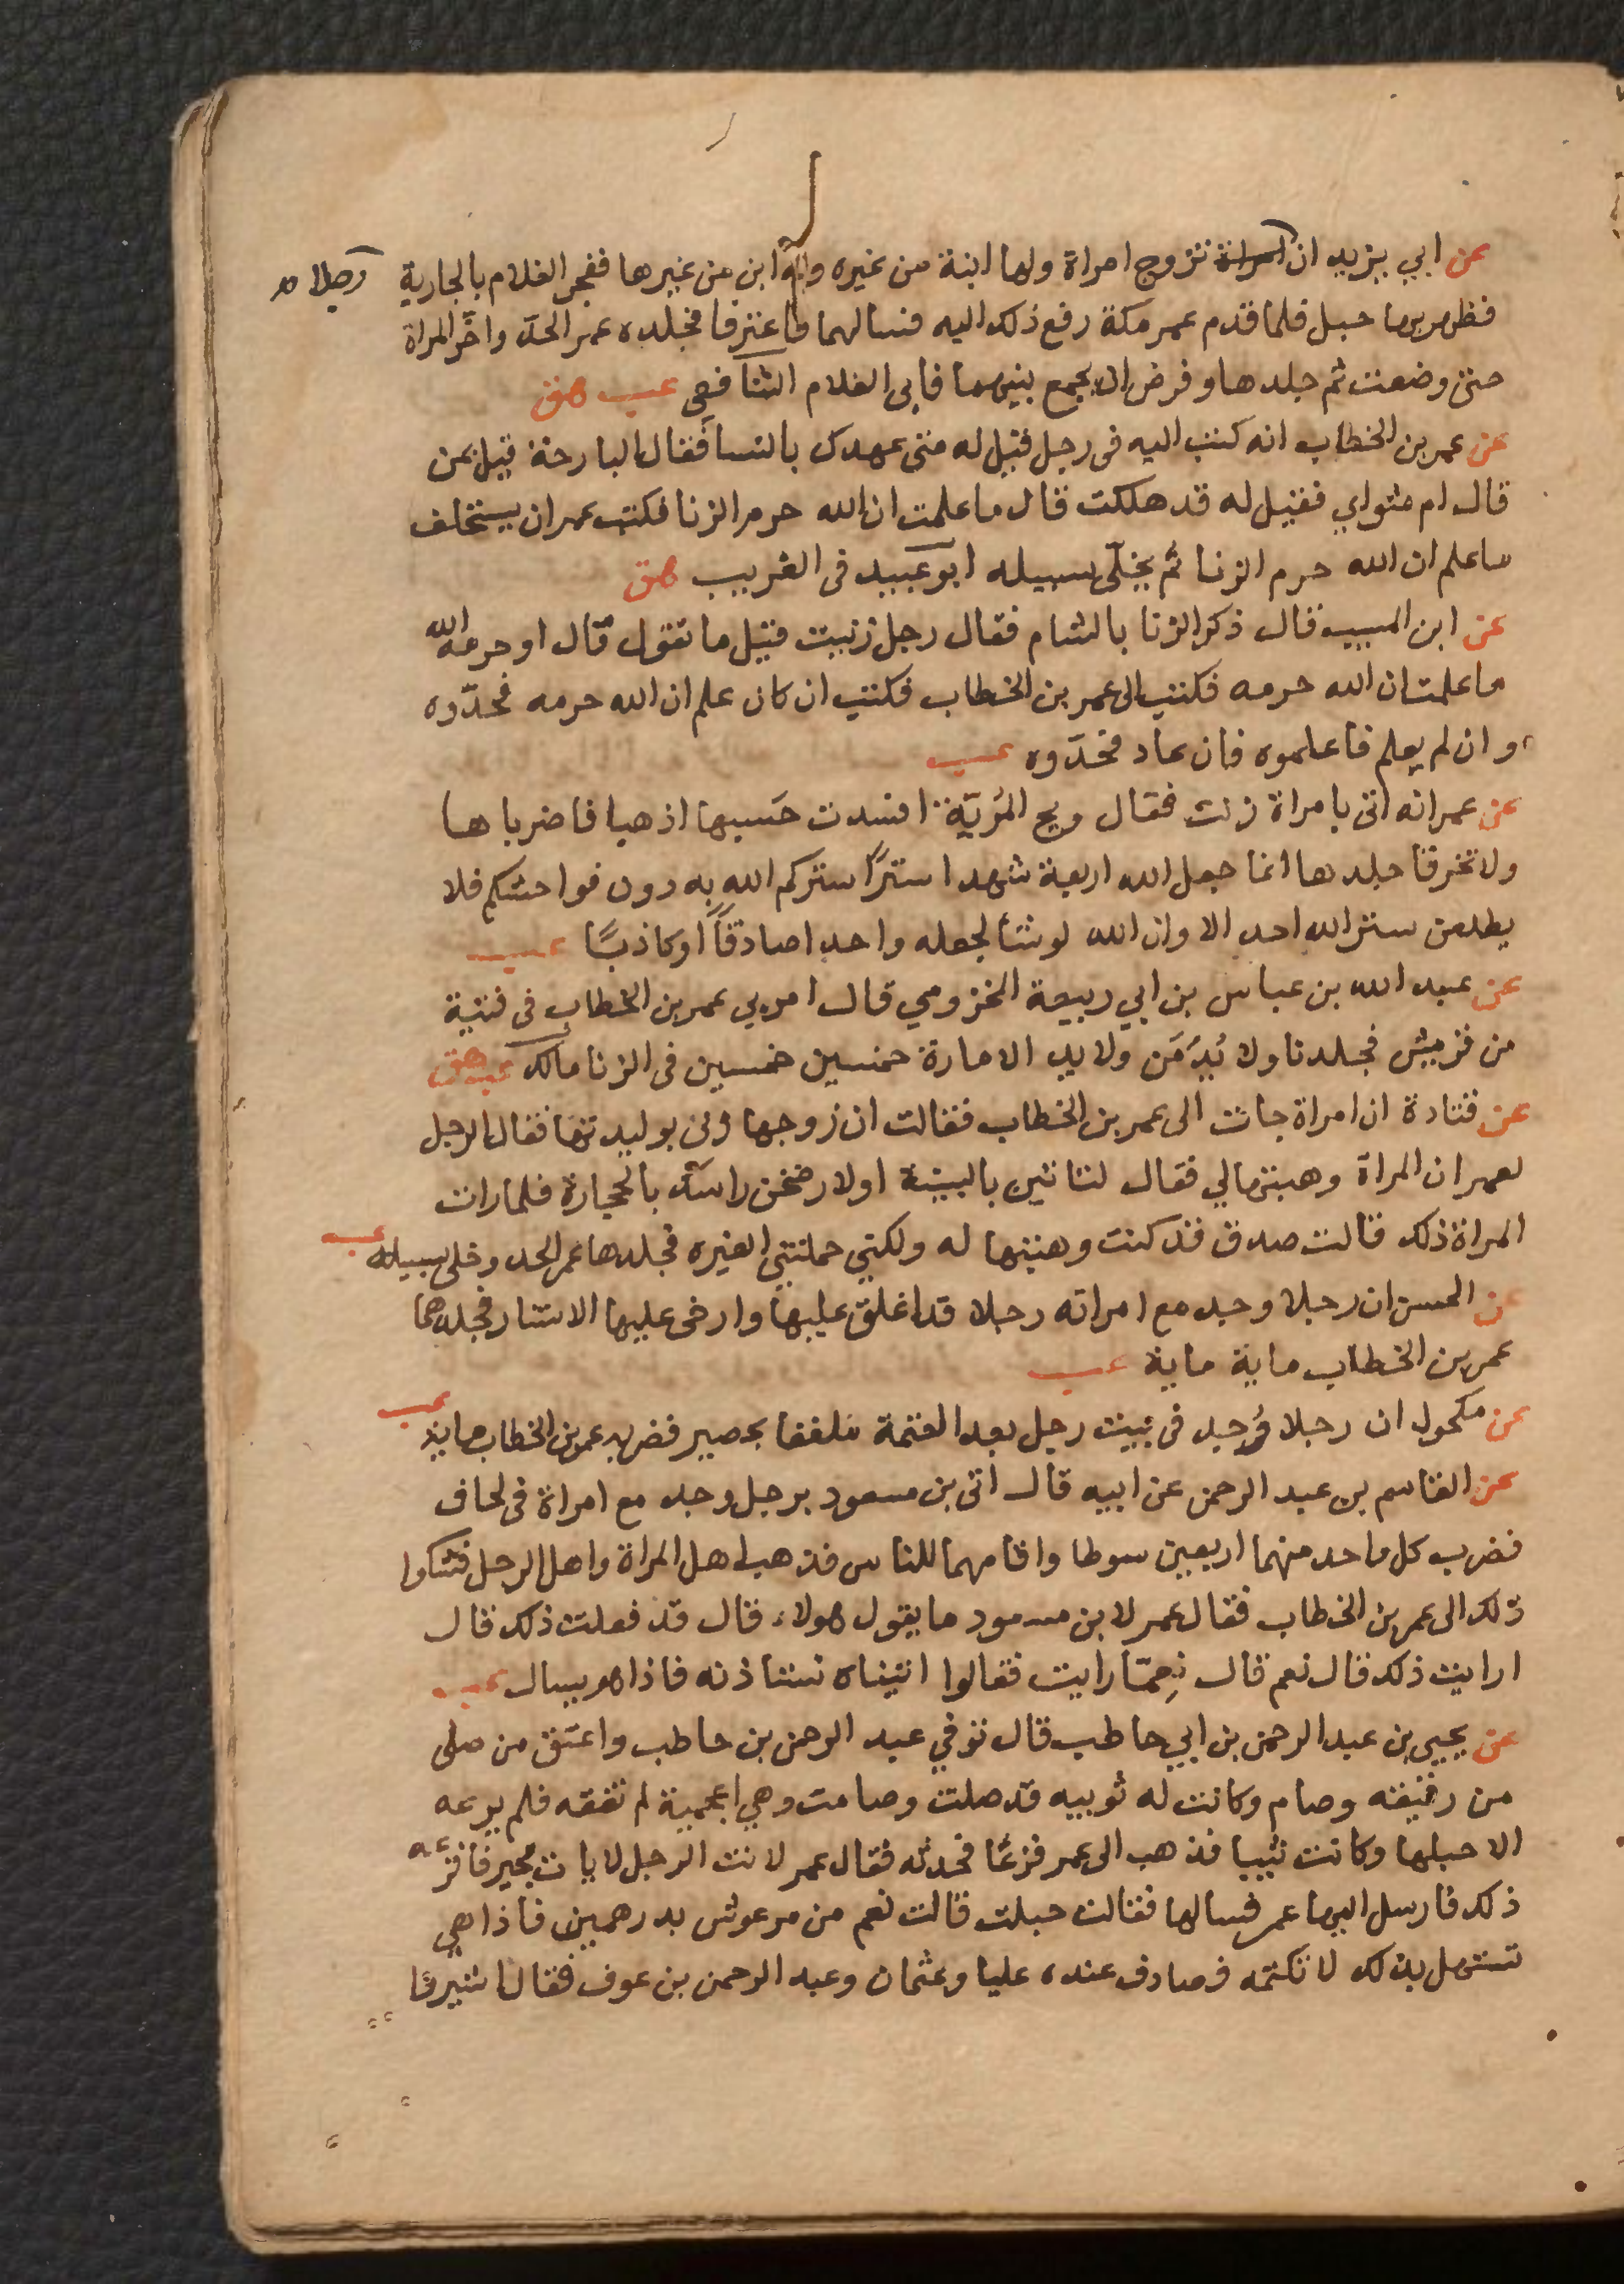 عن ابي يزيد ان امراة تزوج امراة ولها ابنة من غيره وله ابن من غيرها ففجر الغلام بالجارية رجلا صح
فظهر بها حبل فلما قدم عمر مكة رفع ذلك اليه فسالهما فاعترفا فجلده عمر الحدّ واخّر المراة
حتى وضعت ثم جلدها وفرض ان يجمع بينهما فابى الغلام الشافعى عب هق
عن عمر بن الخطاب انه كتب اليه فى رجل قيل له متى عهدك بالنسا فقال البارحة قيل بمن
قال ام مثواي فقيل له قد هلكت قال ما علمت ان الله حرم الزنا فكتب عمر ان يستحلف
ما علم ان الله حرم الزنا ثم يخلّى سبيله ابو عبيد فى الغريب هق
عن ابن المسيب قال ذكر الزنا بالشام فقال رجل زنيت قيل ما تقول قال او حرمه الله
ما علمت ان الله حرمه فكتب الى عمر بن الخطاب فكتب ان كان علم ان الله حرمه فحدّوه
وان لم يعلم فاعلموه فان عاد فحدّوه عب
عن عمر انه اتى بامراة زنت فقال ويح المُريّة افسدت حَسبها اذهبا فاضرباها
ولا تخرقا جلدها انما جعل الله اربعة شهدا سترًا ستركم الله به دون فواحشكم فلا
يطلعن ستر الله احد الا وان الله لو شا لجعله واحدا صادقًا او كاذبًا عب
عن عبد الله بن عباس بن ابي ربيعة المخزومي قال امرني عمر بن الخطاب فى فتية
من قريش فجلدنا ولائد من ولايد الامارة خمسين خمسين فى الزنا مالك عب هق
عن قتادة ان امراة جات الى عمر بن الخطاب فقالت ان زوجها زنى بوليدتها فقال الرجل
لعمر ان المراة وهبتها لي فقال لتاتين بالبينة او لارضخن راسك بالحجارة فلما رات
المراة ذلك قالت صدق قد كنت وهبتها له ولكني حملتني الغيره فجلدها عمر الحد وخلى سبيله عب
عن الحسن ان رجلا وجد مع امراته رجلا قد اغلق عليهما وارخى عليها الاستار فجلدهما
عمر بن الخطاب ماية ماية عب
عن مكحول ان رجلا وُجد فى بيت رجل بعد العتمة ملففا بحصير فضربه عمر بن الخطاب ماية عب
عن القاسم بن عبد الرحمن عن ابيه قال اتى بن مسعود برجل وجد مع امراة فى لحاف
فضرب كل واحد منهما اربعين سوطا واقامهما للناس فذهب اهل المراة واهل الرجل فشكوا
ذلك الى عمر بن الخطاب فقال عمر لابن مسعود ما يقول هولاء قال قد فعلت ذلك قال
ارايت ذلك قال نعم قال نِعمّا رايت فقالوا اتيناه نستاذنه فاذا هو يسال عب
عن يحيى بن عبد الرحمن بن ابي حاطب قال توفي عبد الرحمن بن حاطب واعتق من صلى
من رقيقه وصام وكانت له نوبيه قد صلت وصامت وهي اعجمية لم تفقه فلم يرعه
الا حبلها وكانت ثيبا فذهب الى عمر فزعًا فحدثه فقال عمر لانت الرجل لا يات بخير فافزعه
ذلك فارسل اليها عمر فسالها فقالت حبلت قالت نعم من مرعوش بدرهمين فاذا هي
تستهل بذلك لا تكتمه فصادف عنده عليا وعثمان وعبد الرحمن بن عوف فقال اشيروا